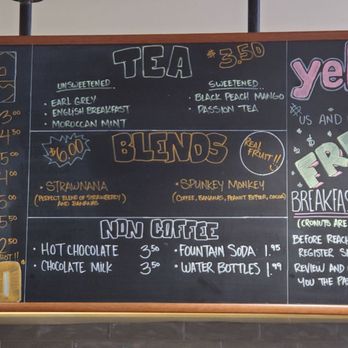 TEA
$3.50
UNSWEETENED
• EARL GREY
• ENGLISH BREAKFAST
• MOROCCAN MINT
SWEETENED
• BLACK PEACH MANGO
• PASSION TEA
$6.00
BLENDS
REAL
FRUIT!!
• STRAWNANA
(PERFECT BLEND OF STRAWBERRY)
AND BANANAS
• SPUNKEY MANKEY
(COFFEE, BANANAS, PEANUT BUTTER, COCOA)
NON COFFEE
• HOT CHOCOLATE 3.50
• CHOCOLATE MILK 3.50
• FOUNTAIN SODA 1.95
• WATER BOTTLES 1.99
yel
US AND
FREE
BREAKFAS
(CRONUTS ARE
BEFORE REACH
REGISTER S
REVIEW AND
YOU THE PA